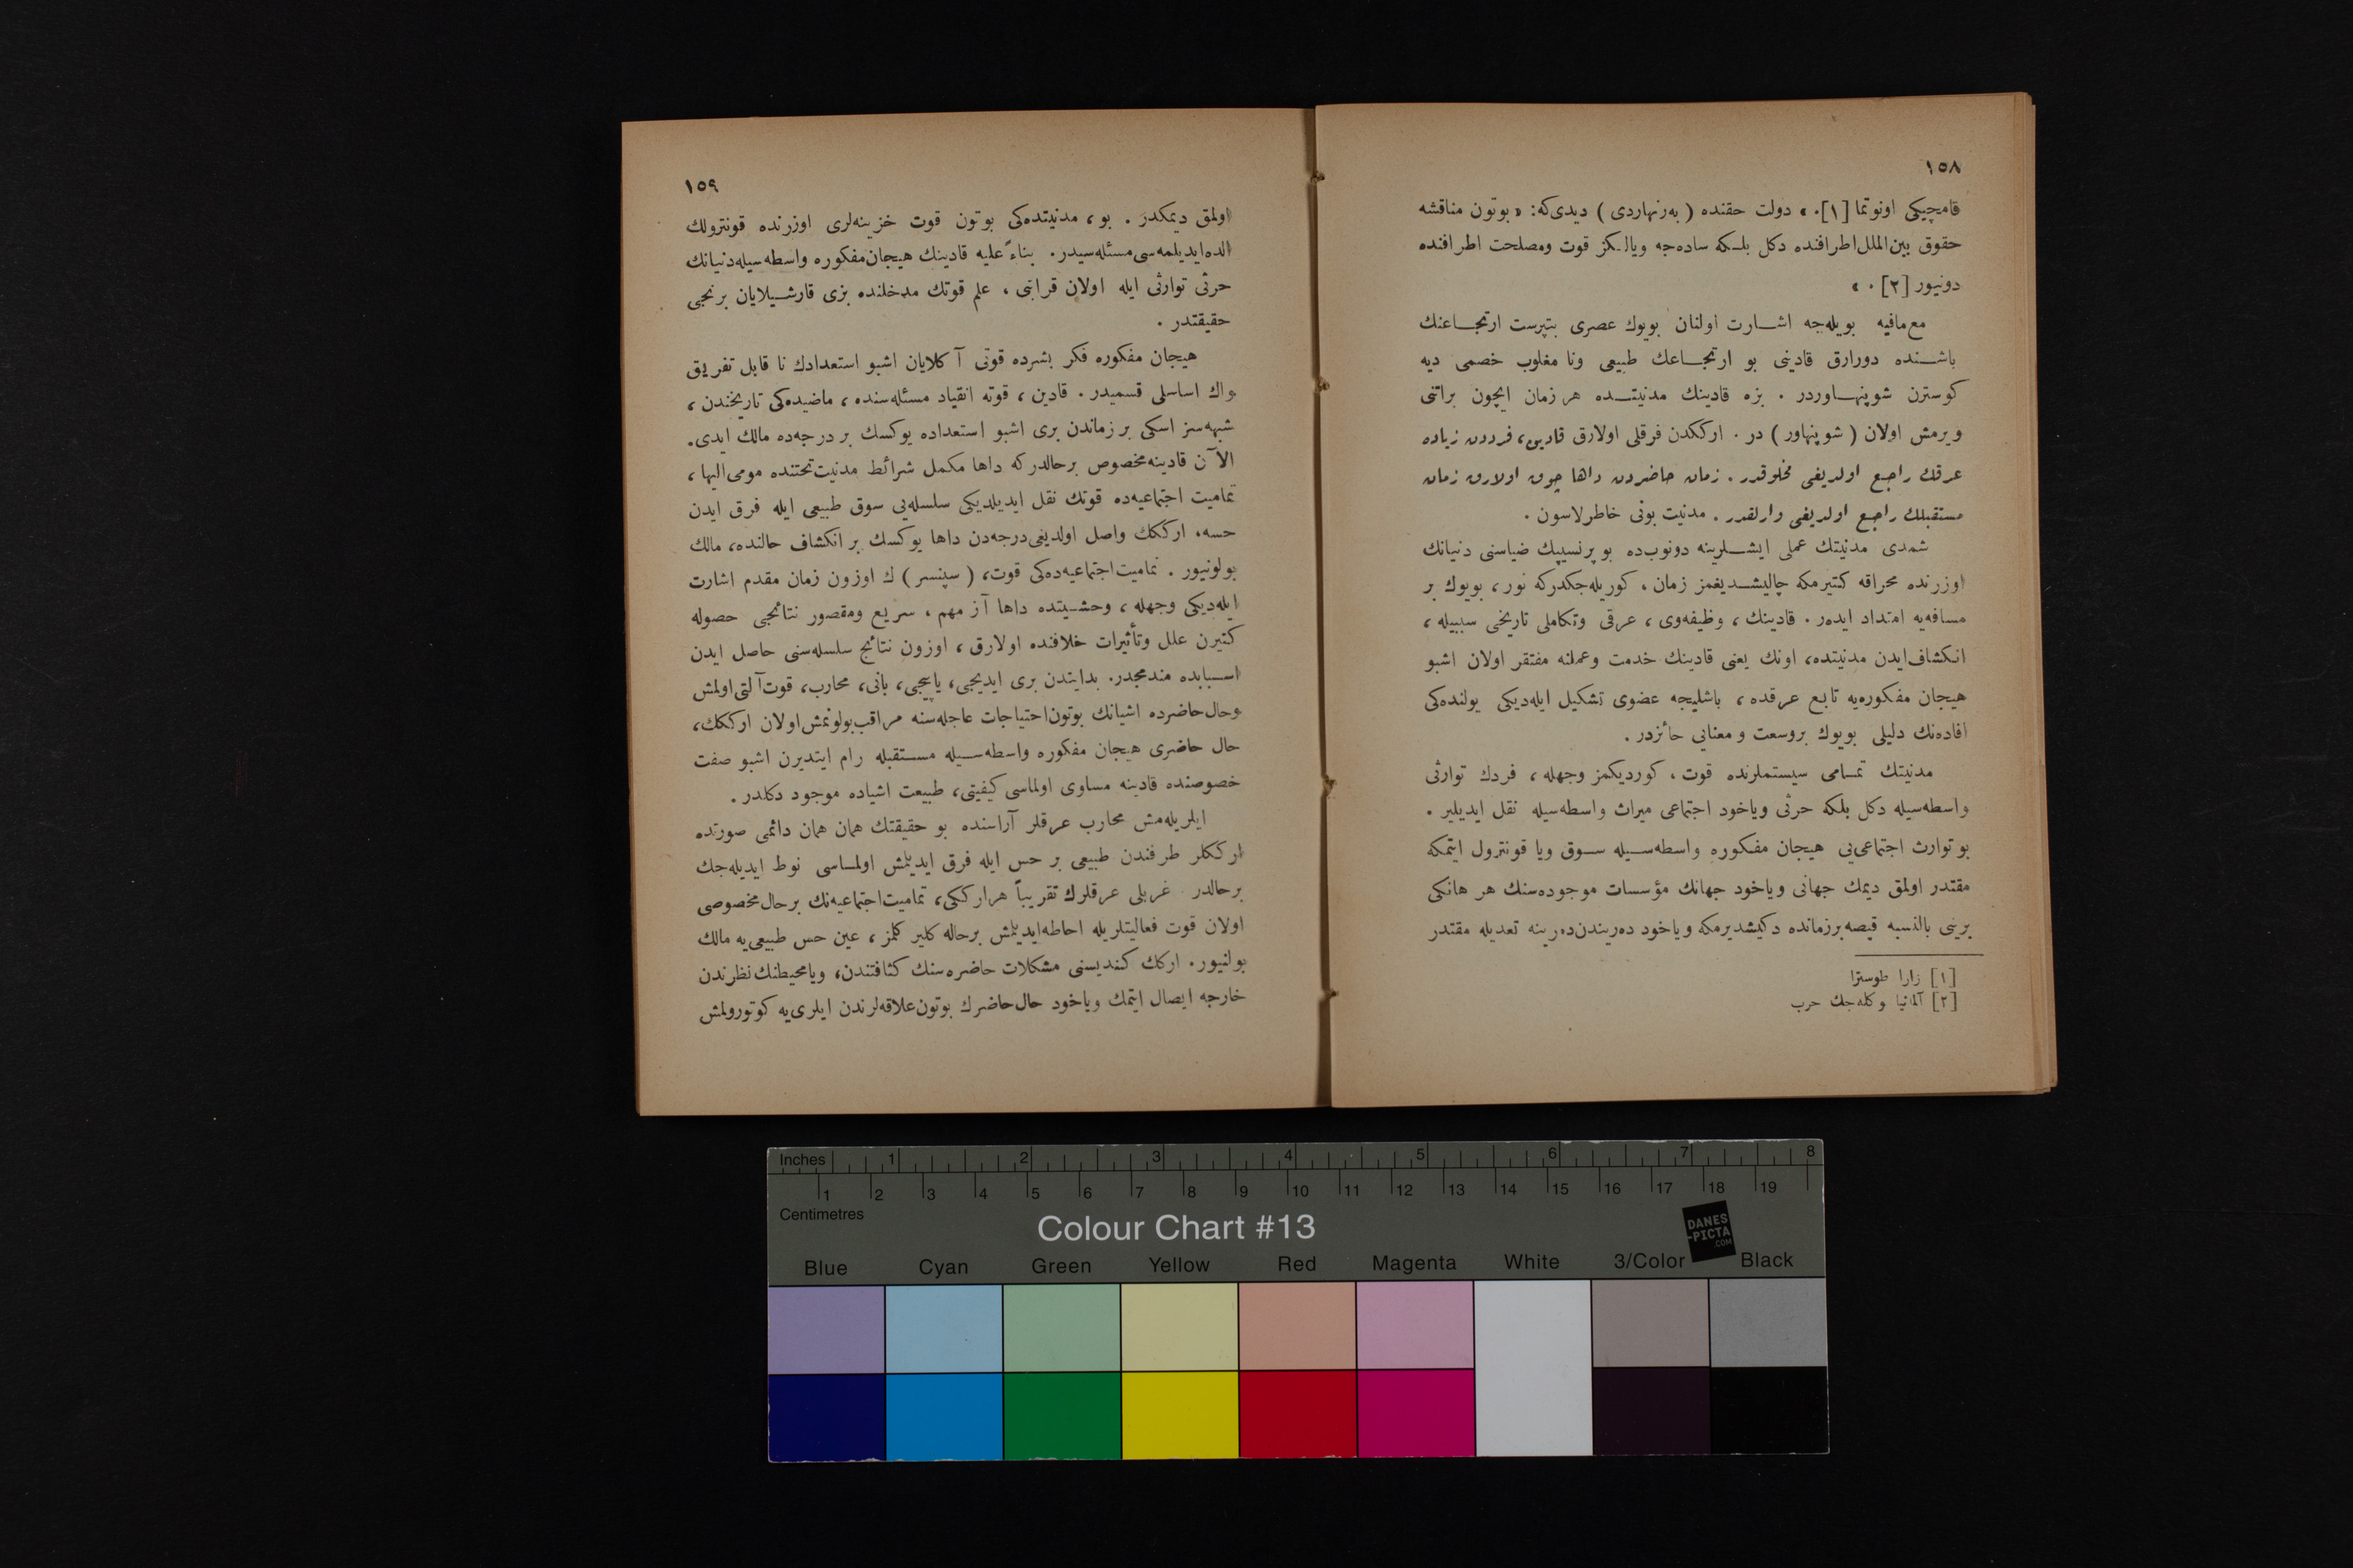 ١٥٨
قامچیکی اونوتما [١]. » دولت حقنده ( به‌رنهاردی ) دیدی‌که: « بوتون مناقشه
حقوق بین‌الملل اطرافنده دکل بلـکه ساده‌جه ویالـکز قوت ومصلحت اطرافنده
دونیور [٢] . »
مع‌مافیه بویله‌جه اشـارت اولنان بویوك عصری بتپرست ارتجـاعنك
باشـنده دورارق قادینی بو ارتجـاعك طبیعی ونا مغلوب خصمی دیه
کوسترن شوپنهـاوردر . بزه قادینك مدنیتـده هر زمان ایچون براتنی
ویرمش اولان ( شوپنهاور ) در . ارککدن فرقلی اولارق قادین، فرددن زیاده
عرقك راجع اولدیغی مخلوقدر . زمان حاضردن داها چوق اولارق زمان
مستقبلك راجع اولدیغی وارلقدر . مدنیت بونی خاطرلاسون .
شمدی مدنیتك عملی ایشـلرینه دونوب‌ده بو پرنسیپك ضیاسنی دنیانك
اوزرنده محراقه کتیرمکه چالیشـدیغمز زمان ، کوریله‌جکدرکه نور، بویوك بر
مسافه‌یه امتداد ایده‌ر . قادینك ، وظیفه‌وی ، عرقی وتکاملی تاریخی سببیله ،
انکشاف ایدن مدنیتده، اونك یعنی قادینك خدمت وعملنه مفتقر اولان اشبو
هیجان مفکوره‌یه تابع عرقده ، باشلیجه عضوی تشکیل ایله‌دیکی یولنده‌کی
افاده‌نك دلیلی بویوك بروسعت و معنایی حائزدر .
مدنیتك تمـامی سیستملرنده قوت ، کوردیکمز وجهله ، فردك توارثی
واسطه‌سیله دکل بلکه حرثی ویاخود اجتماعی میراث واسطه‌سیله نقل ایدیلیر .
بو توارث اجتماعی‌یی هیجان مفـکوره واسطه‌سـیله سـوق ویا قونترول ایتمکه
مقتدر اولمق دیمك جهانی ویاخود جهانك مؤسسات موجوده‌سنك هر هانکی
برینی بالنسبه قیصه برزمانده دکیشدیرمکه ویاخود ده‌ریندن‌ده‌رینه تعدیله مقتدر
[١] زارا طوسترا
[٢] آلمانیا وکله‌جك حرب
١٥٩
اولمق دیمکدر . بو ، مدنیتده‌کی بوتون قوت خزینه‌لری اوزرنده قونترولك
الده ایدیلمه‌سی مسئله‌سیدر . بناءً علیه قادینك هیجان مفکوره واسطه‌سیله دنیانك
حرثی توارثی ایله اولان قرابتی ، علم قوتك مدخلنده بزی قارشـیلایان برنجی
حقیقتدر .
هیجان مفکوره فکر بشرده قوتی آکلایان اشبو استعدادك نا قابل تفریق
واك اساسلی قسمیدر . قادین ، قوته انقیاد مسئله‌سنده ، ماضیده‌کی تاریخندن ،
شبهه‌سز اسکی بر زماندن بری اشبو استعداده یوکسك بر درجه‌ده مالك ایدی.
الآن قادینه مخصوص برحالدرکه داها مکمل شرائط مدنیت تحتنده مومی‌الیها ،
تمامیت اجتماعیه‌ده قوتك نقل ایدیلدیکی سلسله‌یی سوق طبیعی ایله فرق ایدن
حسه، ارککك واصل اولدیغی درجه‌دن داها یوکسك بر انکشاف حالنده، مالك
بولونیور . تمامیت اجتماعیه‌ده‌کی قوت، ( سپنسر ) ك اوزون زمان مقدم اشارت
ایله‌دیکی وجهله ، وحشـیتده داها آز مهم ، سریع ومقصور نتائجی حصوله
کتیرن علل وتأثیرات خلافنده اولارق ، اوزون نتائج سلسله‌سنی حاصل ایدن
اسـبابده مندمجدر. بدایتدن بری ایدیجی، یاپیجی، بانی، محارب، قوت آلتی اولمش
وحال حاضرده اشیانك بوتون احتیاجات عاجله‌سنه مراقب بولونمش اولان ارککك،
حال حاضری هیجان مفکوره واسطه‌سـیله مسـتقبله رام ایتدیرن اشبو صفت
خصوصنده قادینه مساوی اولماسی کیفیتی، طبیعت اشیاده موجود دکلدر .
ایلریله‌مش محارب عرقلر آراسنده بو حقیقتك همان همان دائمی صورتده
ارککلر طرفندن طبیعی بر حس ایله فرق ایدیلمش اولمـاسی نوط ایدیله‌جك
برحالدر غربلی عرقلرك تقریباً هر ارککی، تمامیت اجتماعیه‌نك برحال مخصوصی
اولان قوت فعالیتلریله احاطه ایدیلمش برحاله کلیر کلمز ، عین حس طبیعی‌یه مالك
بولنیور. ارکك کندیسنی مشکلات حاضره‌سنك کثافتندن، ویامحیطنك نظرندن
خارجه ایصال ایتمك ویاخود حال حاضرك بوتون علاقه‌لرندن ایلری‌یه کوتورولمش
Inches 1 2 3 4 5 6 7 8
1 2 3 4 5 6 7 8 9 10 11 12 13 14 15 16 17 18 19
Centimetres
Colour Chart #13
DANES
-PICTA
.COM
Blue Cyan Green Yellow Red Magenta White 3/Color Black